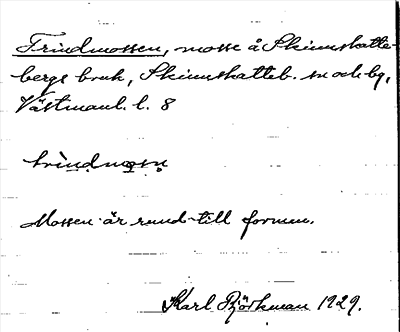 Trindmossen, mosse å Skinnskatte-
bergs bruk, Skinnskatteb. sn och bg,
Västmanl. l. 8
trìndmọsṇ
Mossen är rund till formen.
Karl Björkman 1929.